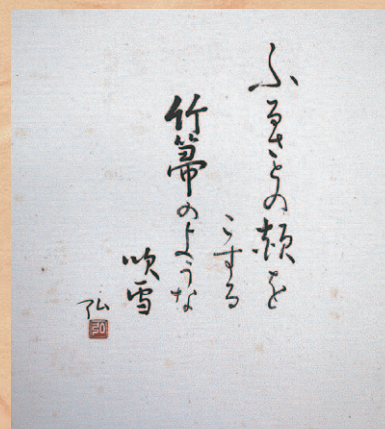 ふるさとの頬を
こする
竹箒のような
吹雪
弘
弘